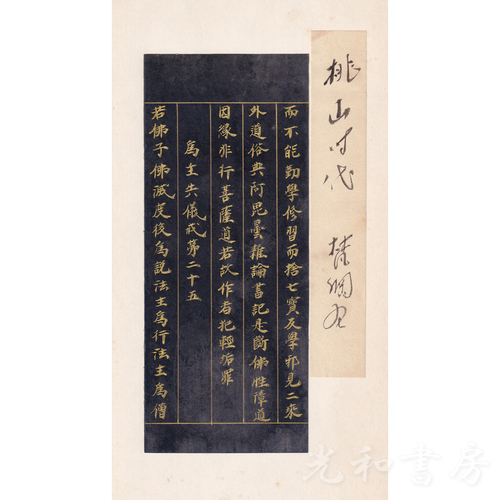 桃山时代
而不能勤學修習而捨七寶反學邪見二乘
外道俗典阿毘曇雜論書記是斷佛性障道
因緣非行菩薩道若故作者犯輕垢罪
爲主失儀戒第二十五
若佛子佛滅度後爲說法主爲行法主爲僧
光和書房